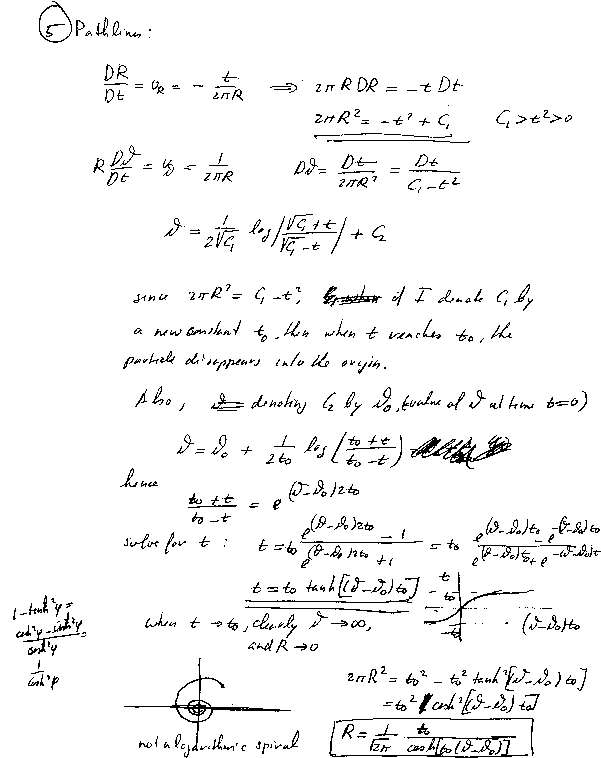 ⑤ Pathlines:
DR/Dt = v_R = - t/2πR ⟹ 2πR DR = -t Dt
2πR² = -t² + C₁ C₁ > t² > 0
R Dϑ/Dt = v_ϑ = 1/2πR Dϑ = Dt/2πR² = Dt/C₁-t²
ϑ = 1/2√C₁ log |√C₁+t / √C₁-t| + C₂
since 2πR² = C₁-t², if I denote C₁ by
a new constant t₀, then when t reaches t₀, the
particle disappears into the origin.
Also, denoting C₂ by ϑ₀, (value of ϑ at time t=0)
ϑ = ϑ₀ + 1/2t₀ log (t₀+t / t₀-t)
hence
t₀+t / t₀-t = e^(ϑ-ϑ₀)2t₀
solve for t: t = t₀ e^(ϑ-ϑ₀)2t₀ - 1 / e^(ϑ-ϑ₀)2t₀ + 1 = t₀ e^(ϑ-ϑ₀)t₀ - e^-(ϑ-ϑ₀)t₀ / e^(ϑ-ϑ₀)t₀ + e^-(ϑ-ϑ₀)t₀
t = t₀ tanh[(ϑ-ϑ₀)t₀]
t
t₀
-t₀
(ϑ-ϑ₀)t₀
1-tanh²φ =
cosh²φ - sinh²φ / cosh²φ =
1/cosh²φ
when t → t₀, clearly ϑ → ∞,
and R → 0
2πR² = t₀² - t₀² tanh²[(ϑ-ϑ₀)t₀]
= t₀² / cosh²[(ϑ-ϑ₀)t₀]
not a logarithmic spiral
R = 1/√2π t₀/cosh[t₀(ϑ-ϑ₀)]